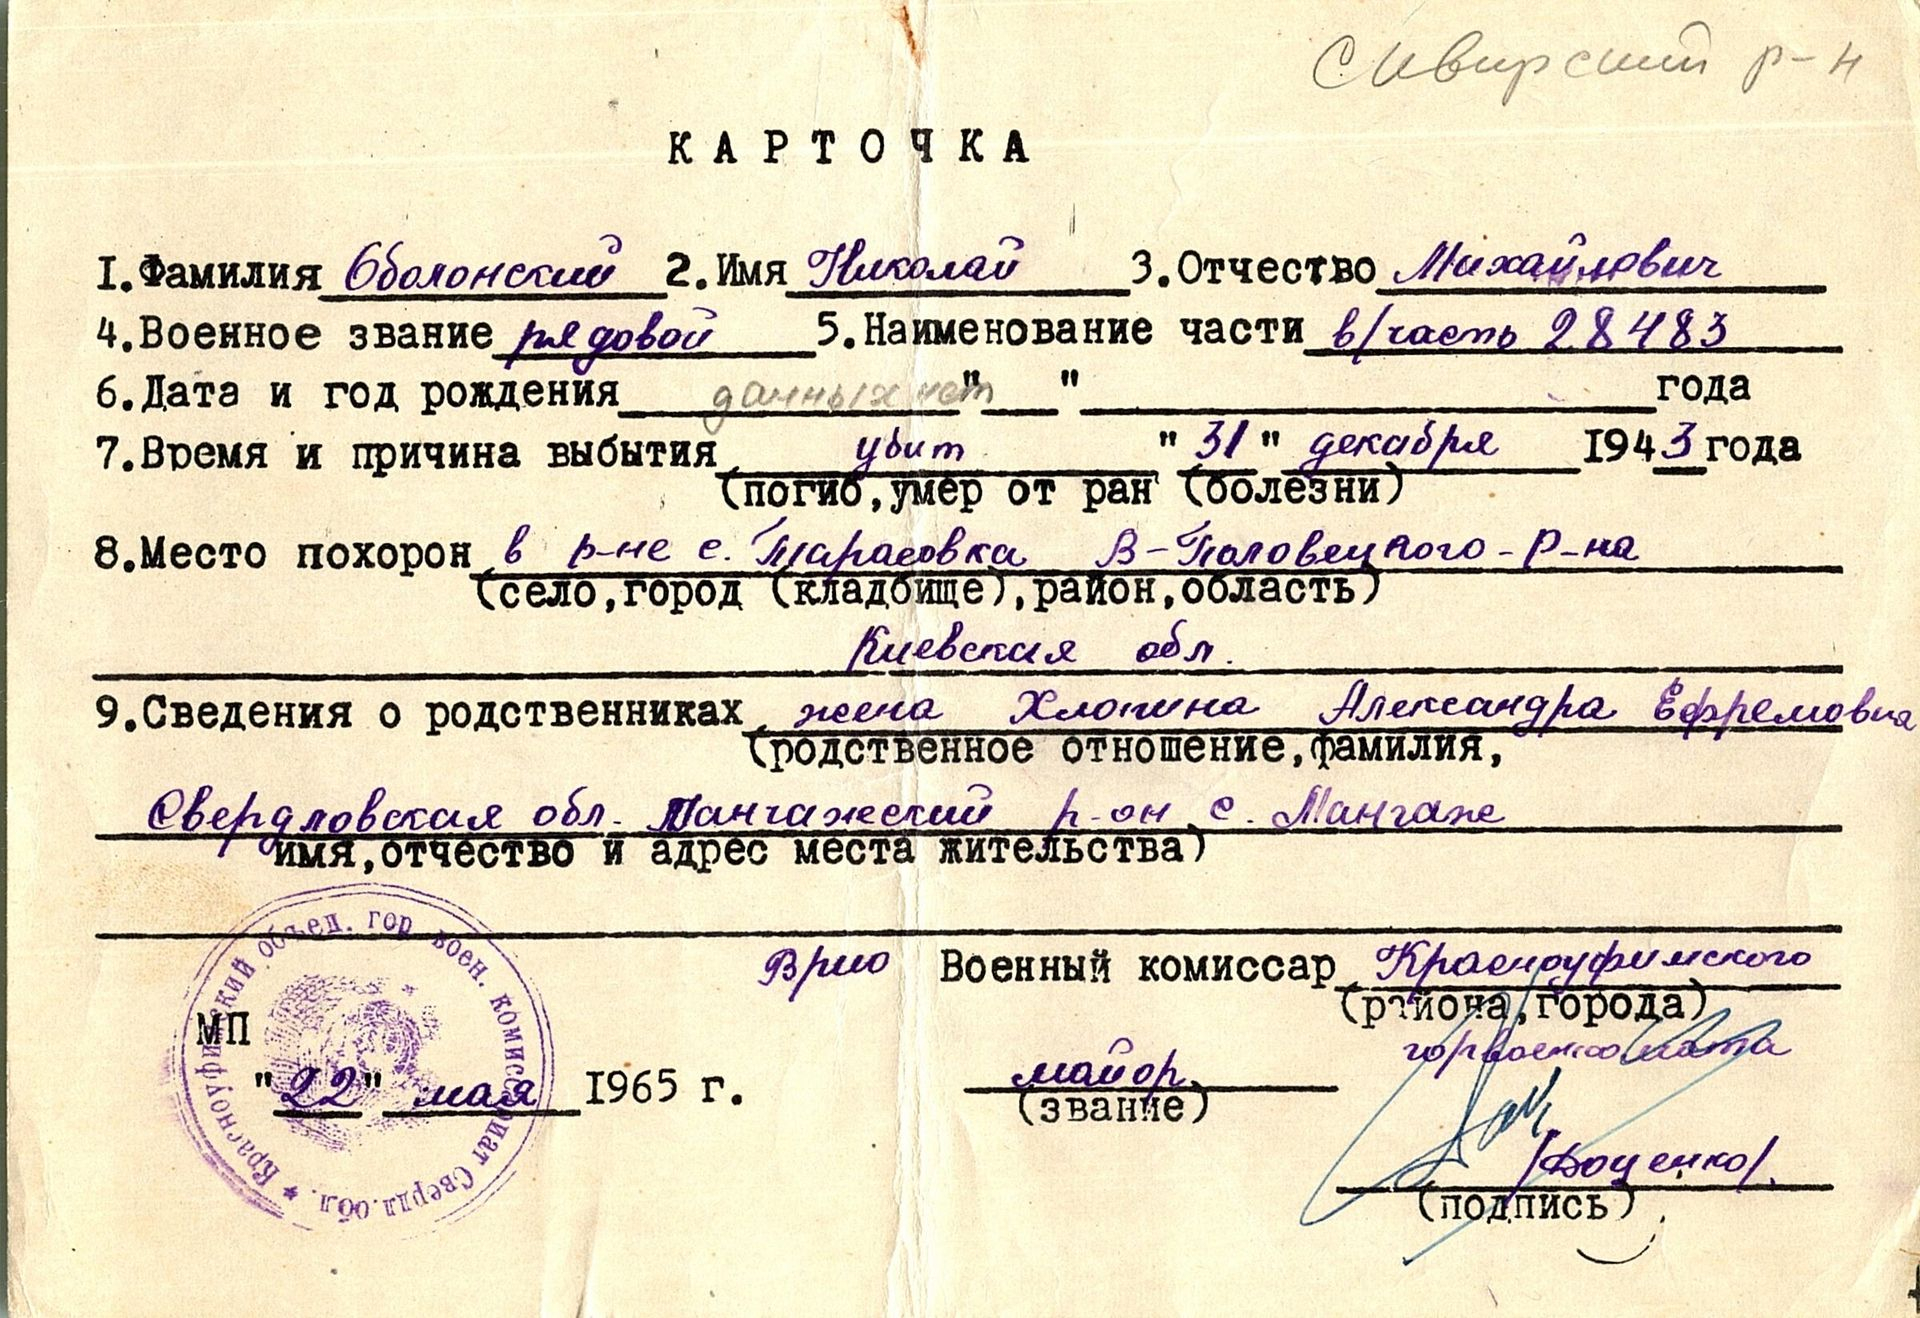 Сквирский р-н
КАРТОЧКА
1.Фамилия Оболонский 2.Имя Николай 3.Отчество Михайлович
4.Военное звание рядовой 5.Наименование части в/часть 28483
6.Дата и год рождения данных нет " " года
7.Время и причина выбытия убит "31" декабря 1943 года
(погиб,умер от ран (болезни)
8.Место похорон в р-не с. Тарасовка В-Половецкого-р-на
(село,город (кладбище),район,область)
Киевская обл.
9.Сведения о родственниках жена Хлопина Александра Ефремовна
(родственное отношение,фамилия,
Свердловская обл. Манчажский р-он с. Манчаж
имя,отчество и адрес места жительства)
Врио Военный комиссар Красноуфимского
(района,города)
горвоенкомата
МП
"22" мая 1965 г.
майор
(звание)
/Доценко/.
(подпись)
* Красноуфимский объед. гор воен. комиссариат Свердл. обл.